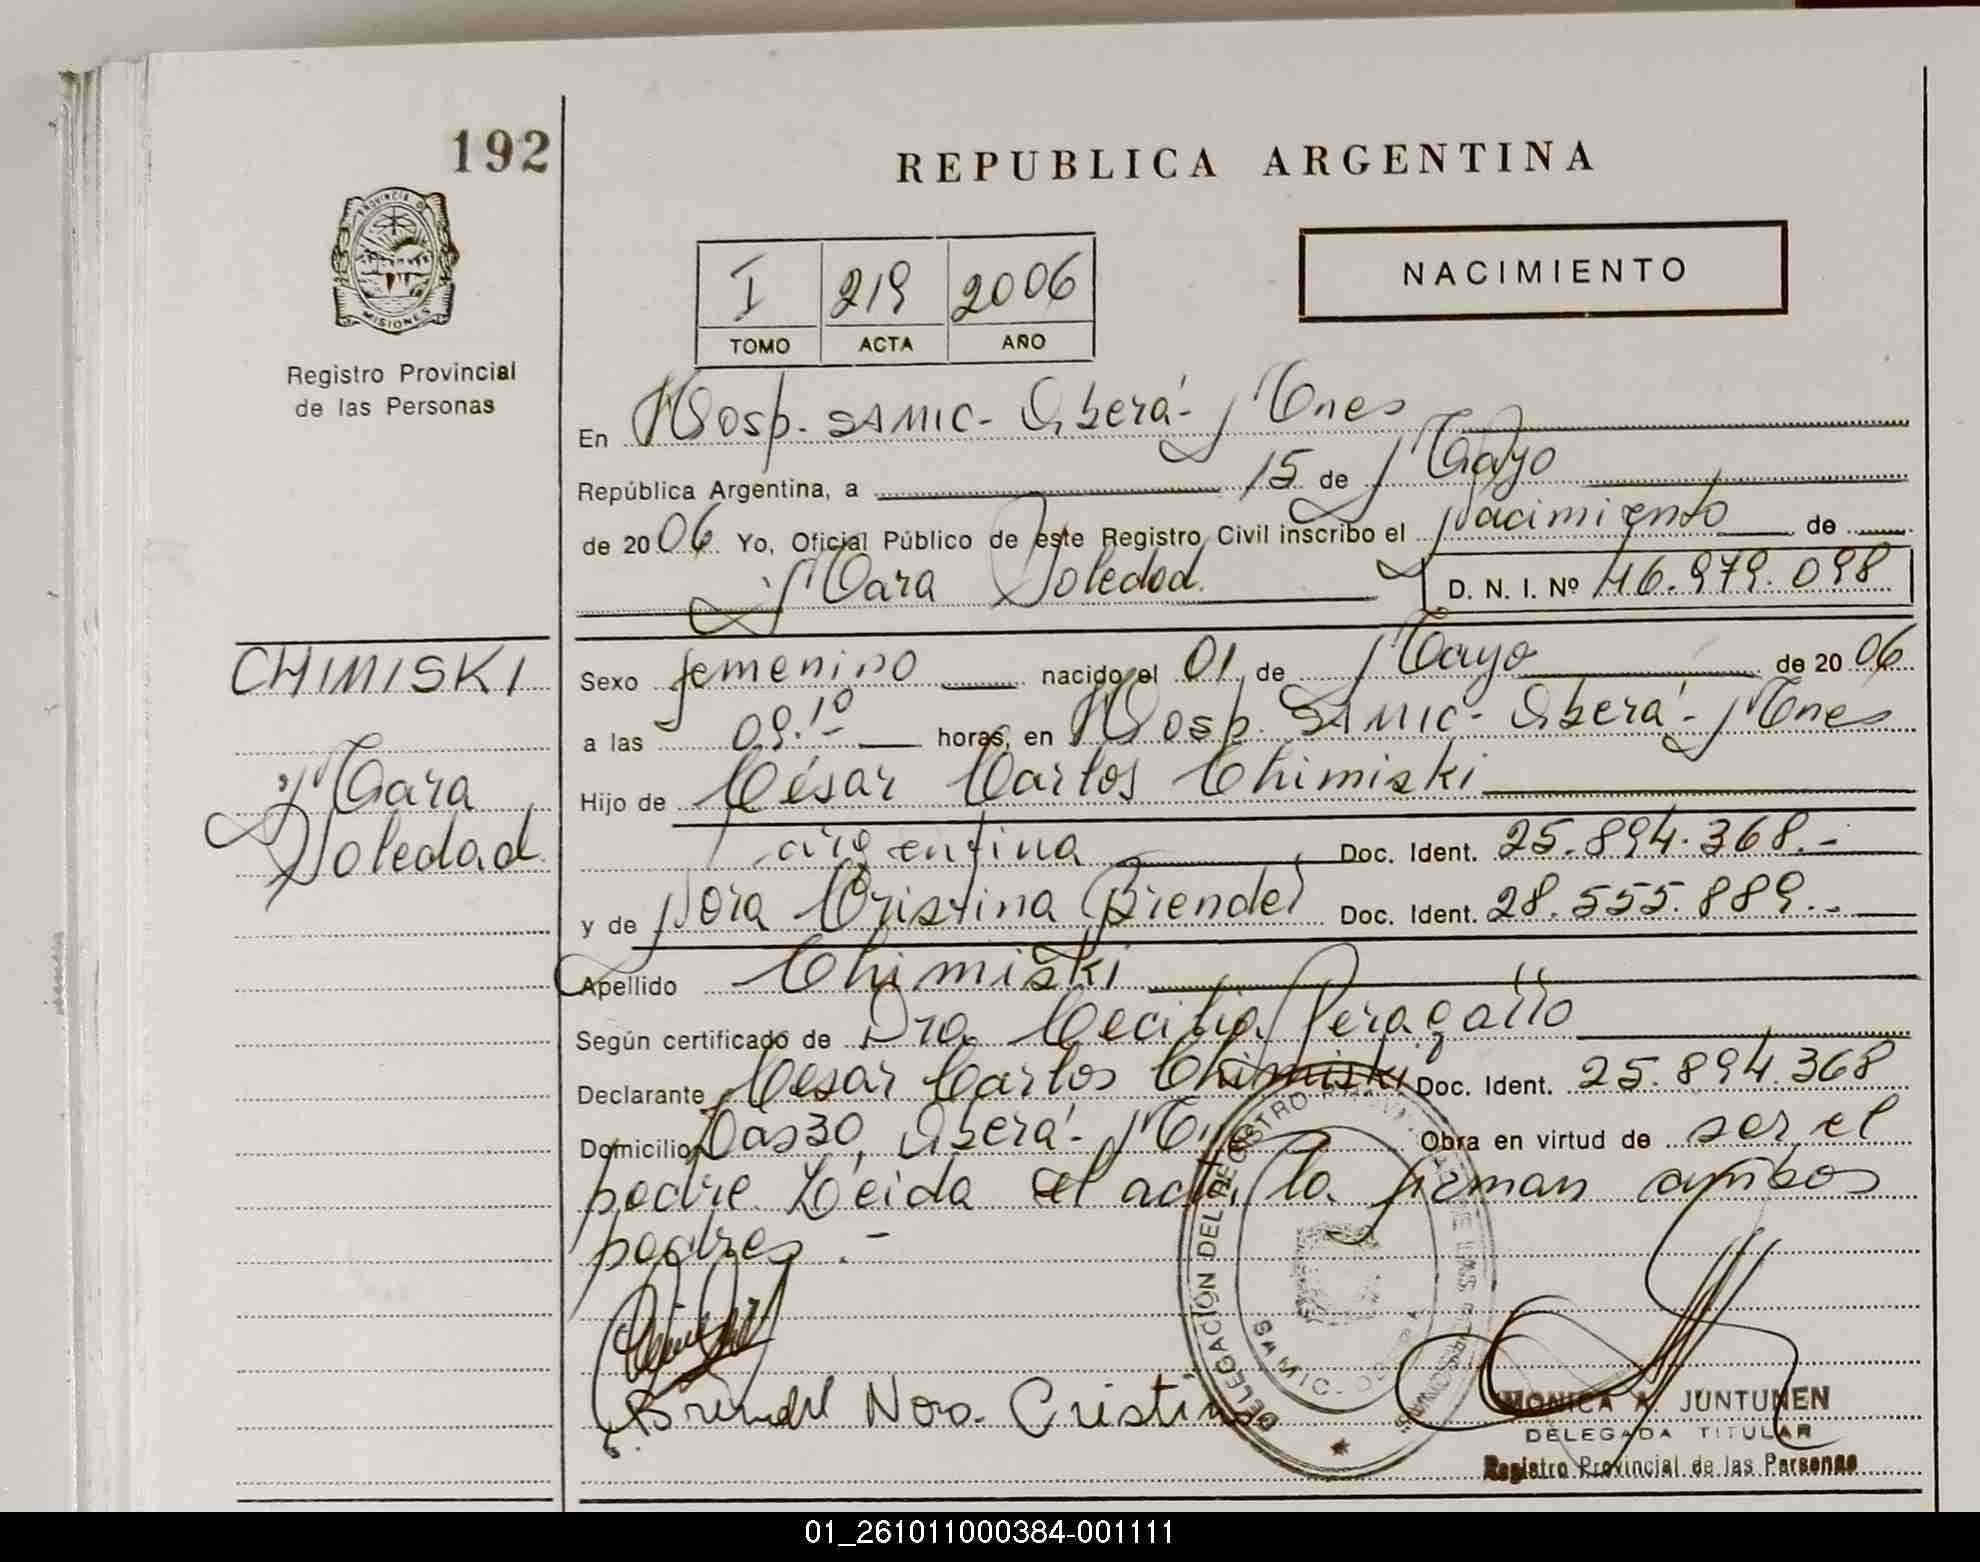 192
REPUBLICA ARGENTINA
PROVINCIA DE
MISIONES
Registro Provincial
de las Personas
I 219 2006
TOMO ACTA AÑO
NACIMIENTO
En Hosp. SAMIC- Oberá- Mnes
República Argentina, a 15 de Mayo
de 2006 Yo, Oficial Público de este Registro Civil inscribo el Nacimiento de
Mara Soledad. D. N. I. Nº 46.979.098
CHIMISKI
Mara
Soledad
Sexo femenino nacido el 01 de Mayo de 2006
a las 09.10 horas, en Hosp. SAMIC- Oberá- Mnes
Hijo de César Carlos Chimiski
argentina Doc. Ident. 25.894.368.-
y de Nora Cristina Briendel Doc. Ident. 28.555.889.-
Apellido Chimiski
Según certificado de Dra. Cecilia Peragallo
Declarante César Carlos Chimiski Doc. Ident. 25.894.368
Domicilio Oberá- Obra en virtud de ser el
padre. Leída el acta, la firman ambos
padres.-
Briendel Nora Cristina
DELEGACIÓN DEL REGISTRO
MONICA A. JUNTUNEN
DELEGADA TITULAR
Registro Provincial de las Personas
01_261011000384-001111